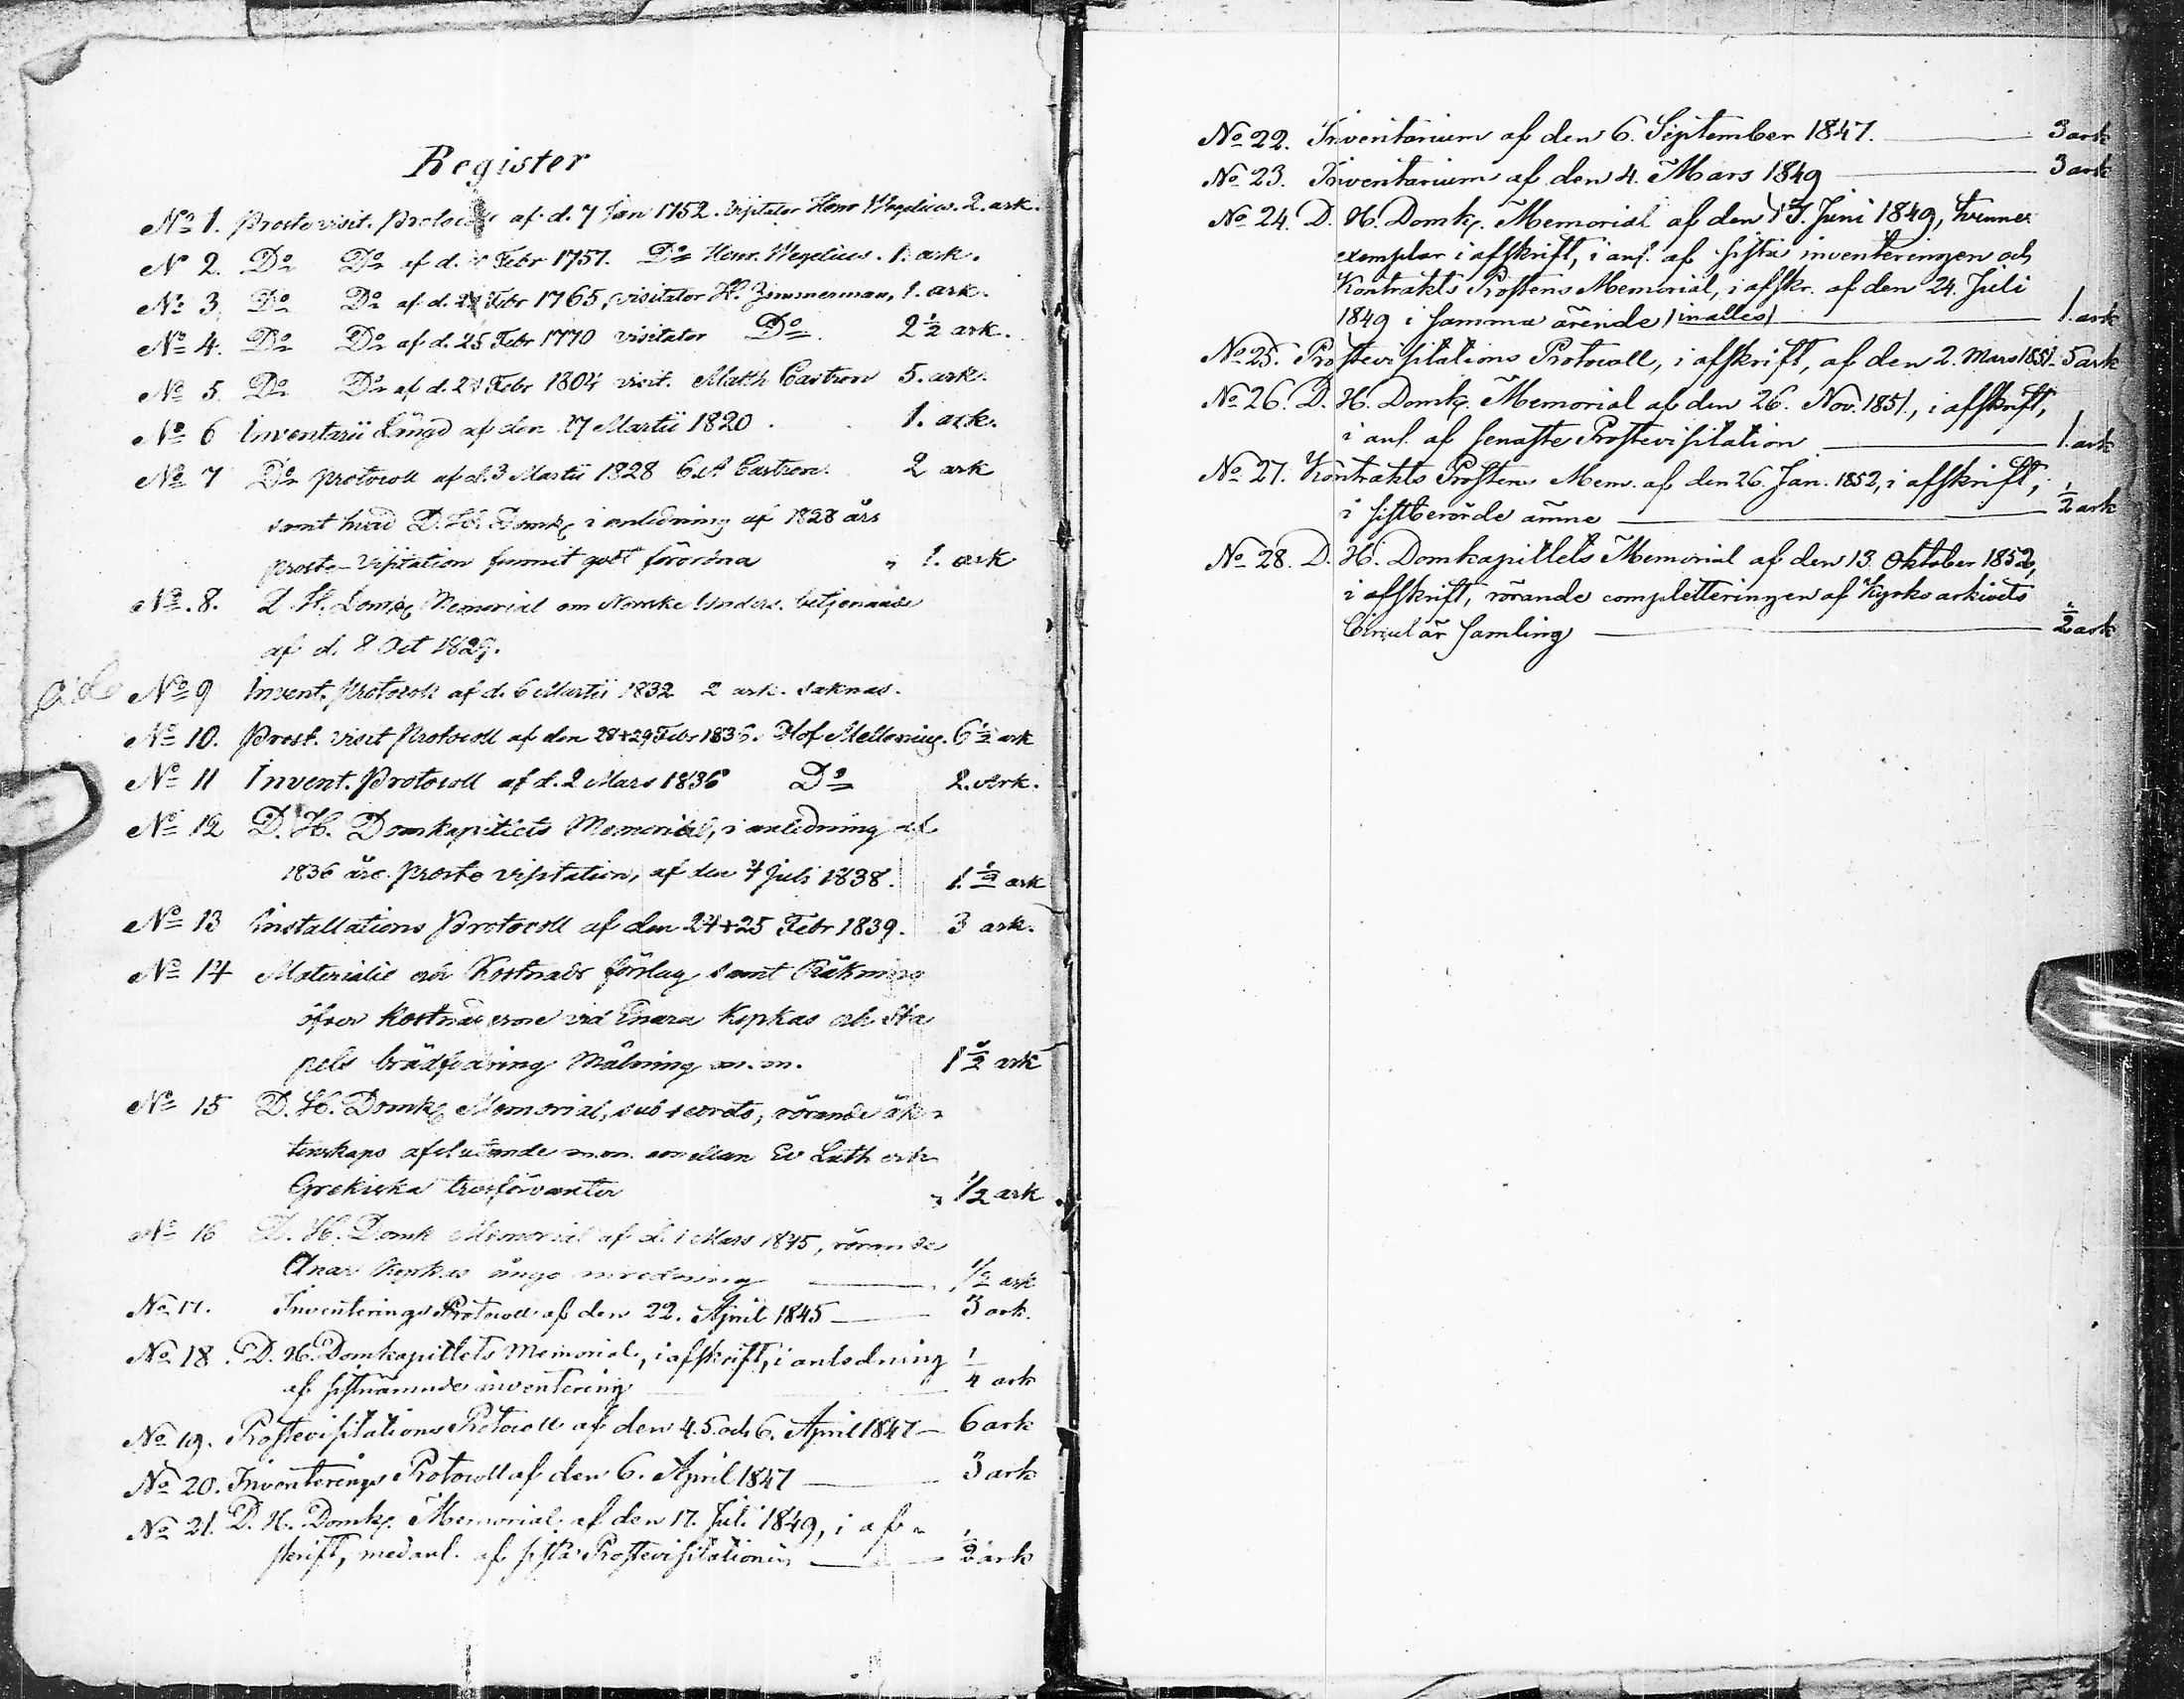 Register
No 1. Proste visit. Protocoll af d. 7 Jan 1752. Visitator Henr Wegelius. 2. ark.
No 2. Do Do af d. Febr 1757. Do Henr. Wegelius. 1. ark.
No 3. Do Do af d. Febr 1765, visitator H. Zimmerman, 1. ark.
No 4. Do Do af d. 25 Febr 1770 visitator Do. 2 1/2 ark.
No 5. Do Do af d. Febr 1804 visit. Math Castren 5. ark.
No 6 Inventarii Längd af den 17 Martii 1820. 1. ark.
No 7 Do protocoll af d. 3 Martii 1828 Castren. 2 ark
samt hvad D. H. Domk i anledning af 1828 års
proste-visitation funnit godt förordna " 1. ark
No. 8. D. H. Domk Memorial om Norske Unders. betjenande
af d. 8 Oct 1829.
No 9 Invent. protocoll af d. 6 Martii 1832 2 ark. saknas.
No 10. Prost. visit Protocoll af den 28+29 Febr 1836. 6 1/2 ark
No 11 Invent. Protocoll af d. 2 Mars 1836 Do 2. Ark.
No 12 D. H. Domkapitlets Memorial, i anledning af
1836 års Proste visitation, af den 4 Juli 1838. 1 1/2 ark
No 13 Installations Protocoll af den 24+25 Febr 1839. 3 ark.
No 14 Materialie och Kostnads förslag samt Räkning
öfver kostnaderne vid Enara Kyrkas och Sta
pels brädfodring Målning m.m. 1 1/2 ark
No 15 D. H. Domk Memorial, sub secreto, rörande äk-
tenskaps afslutande m.m. emellan Ev Luth och
Grekiska trosförvanter " 1/2 ark
No 16 D. H. Domk Memorial af d. 1 Mars 1845, rörande
Enare Kyrkas inredning 1/2 ark
No 17. Inventerings Protocoll af den 22. April 1845 3 ark.
No 18. D. H. Domkapitlets Memorial, i afskrift, i anledning
af sistnämnde inventering 1/4 ark
No 19. Prostevisitations Protocoll af den 4. 5. och 6. April 1847 6 ark
No 20. Inventerings Protocoll af den 6. April 1847 3 ark
No 21. D. H. Domk. Memorial af den 17. Juli 1849, i af-
skrift, med anl. af sista Prostevisitationen 1/2 ark
No 22. Inventarium af den 6. September 1847. 3 ark
No 23. Inventarium af den 4. Mars 1849 3 ark
No 24. D. H. Domk. Memorial af den Juni 1849, tvenne
exemplar i afskrift, i anl. af sista inventeringen och
Kontrakts Prostens Memorial, i afskr. af den 24. Juli
1849 i samma ärende /inalles/ 1. ark
No 25. Prostevisitations Protocoll, i afskrift, af den 2. Mars 1851. 5 ark
No 26. D. H. Domk. Memorial af den 26. Nov. 1851., i afskrift,
i anl. af senaste Prostevisitation 1. ark
No 27. Kontrakts Prostens Mem. af den 26. Jan. 1852, i afskrift,
i sistberörde ämne 1/2 ark
No 28. D. H. Domkapitlets Memorial af den 13. Oktober 1852,
i afskrift, rörande completteringen af Kyrko arkivets
Circulär samling 1/2 ark